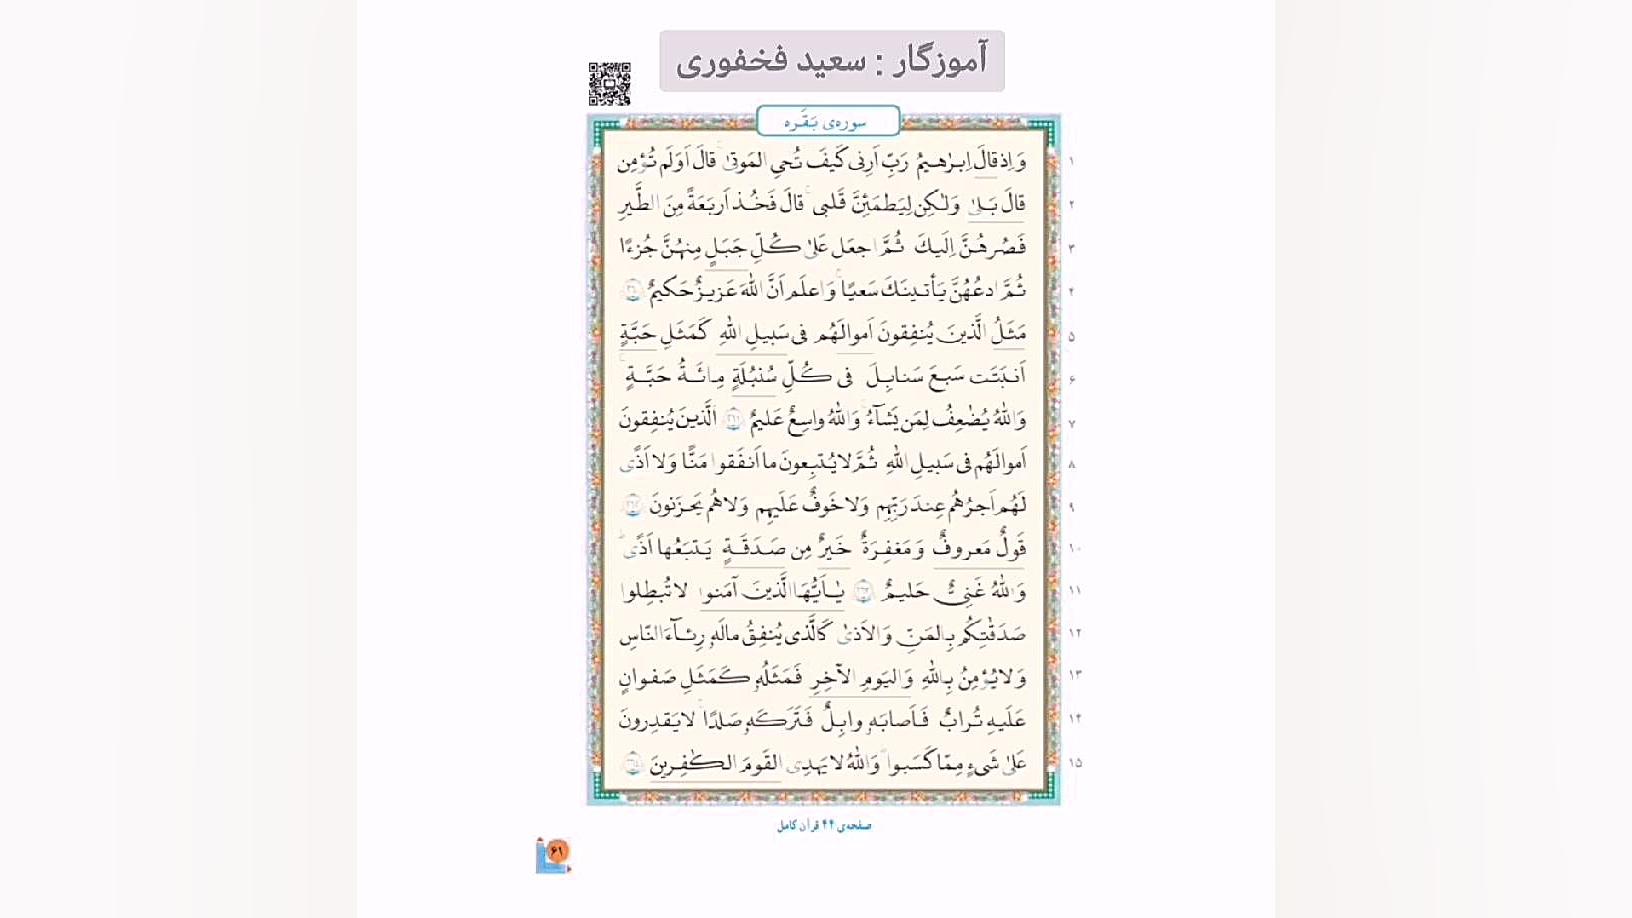 آموزگار : سعید فخفوری
سوره‌ی بَقَره
وَ اِذ قالَ اِبرٰهیمُ رَبِّ اَرِنی کَیفَ تُحیِ المَوتیٰ قالَ اَوَلَم تُؤمِن ۱
قالَ بَلیٰ وَلٰکِن لِیَطمَئِنَّ قَلبی قالَ فَخُذ اَربَعَةً مِنَ الطَّیرِ ۲
فَصُرهُنَّ اِلَیکَ ثُمَّ اجعَل عَلیٰ کُلِّ جَبَلٍ مِنهُنَّ جُزءًا ۳
ثُمَّ ادعُهُنَّ یَأتینَکَ سَعیًا وَ اعلَم اَنَّ اللّٰهَ عَزیزٌ حَکیمٌ ۴
مَثَلُ الَّذینَ یُنفِقونَ اَموالَهُم فی سَبیلِ اللّٰهِ کَمَثَلِ حَبَّةٍ ۵
اَنبَتَت سَبعَ سَنابِلَ فی کُلِّ سُنبُلَةٍ مِائَةُ حَبَّةٍ ۶
وَاللّٰهُ یُضٰعِفُ لِمَن یَشآءُ وَاللّٰهُ واسِعٌ عَلیمٌ ۲۶۱ اَلَّذینَ یُنفِقونَ ۷
اَموالَهُم فی سَبیلِ اللّٰهِ ثُمَّ لا یُتبِعونَ ما اَنفَقوا مَنًّا وَلا اَذًی ۸
لَهُم اَجرُهُم عِندَ رَبِّهِم وَلا خَوفٌ عَلَیهِم وَلا هُم یَحزَنونَ ۹
قَولٌ مَعروفٌ وَ مَغفِرَةٌ خَیرٌ مِن صَدَقَةٍ یَتبَعُها اَذًی ۱۰
وَاللّٰهُ غَنِیٌّ حَلیمٌ ۲۶۳ یٰاَیُّهَا الَّذینَ آمَنوا لا تُبطِلوا ۱۱
صَدَقٰتِکُم بِالمَنِّ وَالاَذیٰ کَالَّذی یُنفِقُ مالَهو رِئآءَ النّاسِ ۱۲
وَلا یُؤمِنُ بِاللّٰهِ وَالیَومِ الآخِرِ فَمَثَلُهو کَمَثَلِ صَفوانٍ ۱۳
عَلَیهِ تُرابٌ فَاَصابَهو وابِلٌ فَتَرَکَهو صَلدًا لا یَقدِرونَ ۱۴
عَلیٰ شَیءٍ مِمّا کَسَبوا وَاللّٰهُ لا یَهدِی القَومَ الکٰفِرینَ ۱۵
صفحه‌ی ۴۴ قرآن کامل
۶۱